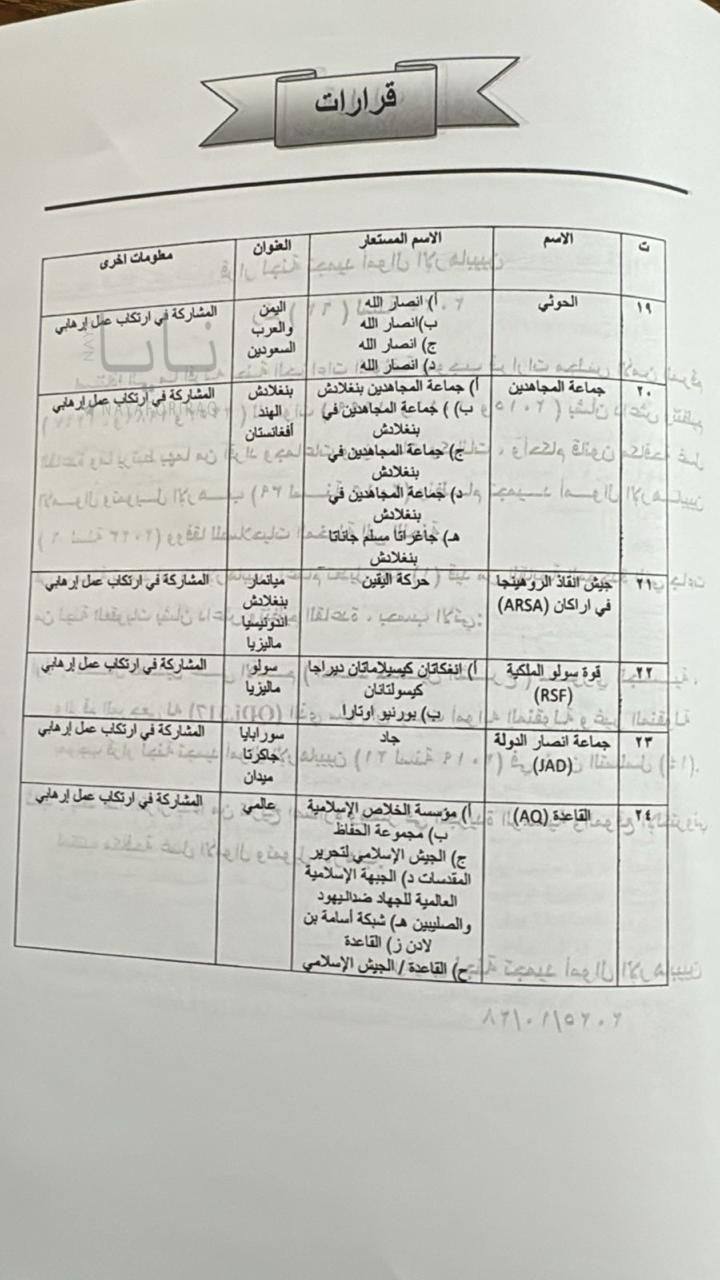 قرارات
ت الاسم الاسم المستعار العنوان معلومات اخرى
١٩ الحوثي أ) انصار الله اليمن المشاركة في ارتكاب عمل إرهابي
ب)انصار الله والعرب
ج) انصار الله السعودين
د) انصار الله
٢٠ جماعة المجاهدين أ) جماعة المجاهدين بنغلادش بنغلادش المشاركة في ارتكاب عمل إرهابي
ب) ) جماعة المجاهدين في الهند
بنغلادش أفغانستان
ج) جماعة المجاهدين في
بنغلادش
د) جماعة المجاهدين في
بنغلادش
هـ) جاغراتا مسلم جاناتا
بنغلادش
٢١ جيش انقاذ الروهينجا حركة اليقين ميانمار المشاركة في ارتكاب عمل إرهابي
في اراكان (ARSA) بنغلادش
اندونيسيا
ماليزيا
٢٢ قوة سولو الملكية أ) انغكاتان كيسيلاماتان ديراجا سولو المشاركة في ارتكاب عمل إرهابي
(RSF) كيسولتانان ماليزيا
ب) بورنيو اوتارا
٢٣ جماعة انصار الدولة جاد سورابايا المشاركة في ارتكاب عمل إرهابي
(JAD) جاكرتا
ميدان
٢٤ القاعدة (AQ) أ) مؤسسة الخلاص الإسلامية عالمي المشاركة في ارتكاب عمل إرهابي
ب) مجموعة الحفاظ
ج) الجيش الإسلامي لتحرير
المقدسات د) الجبهة الإسلامية
العالمية للجهاد ضداليهود
والصليبين هـ) شبكة أسامة بن
لادن ز) القاعدة
ح) القاعدة / الجيش الإسلامي
نايا